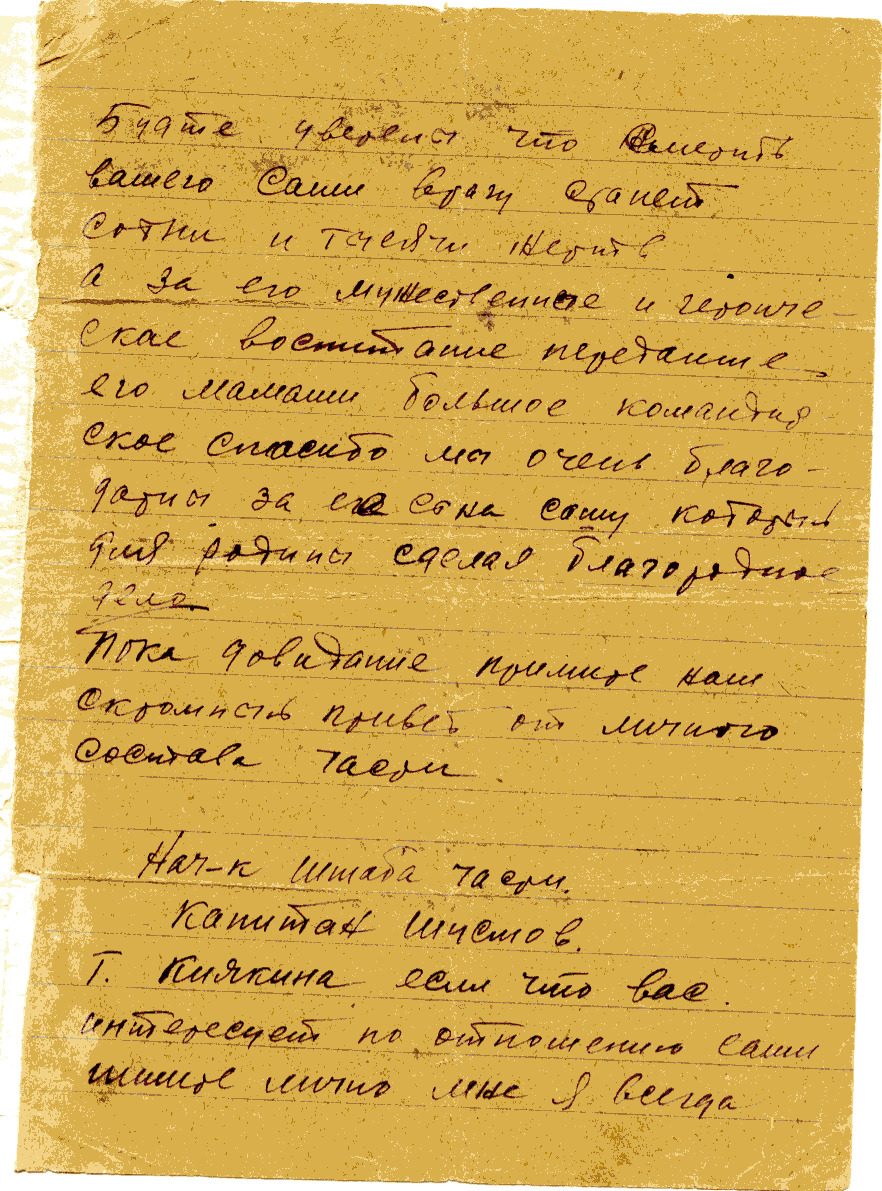 Будте уверены что смерть
вашего Саши врагу станет
сотни и тысячи жертв
а за его мужественное и героиче-
ское воспитание передайте
его мамаши большое командир
ское спасибо мы очень благо-
дарны за её сына сашу который
для родины сделал благородное
дело
Пока довидание примите наш
скромный привет от личного
состава части
Нач-к штаба части.
Капитан Шустов.
Т. Княкина если что вас
интересует по отношению саши
пишите лично мне я всегда